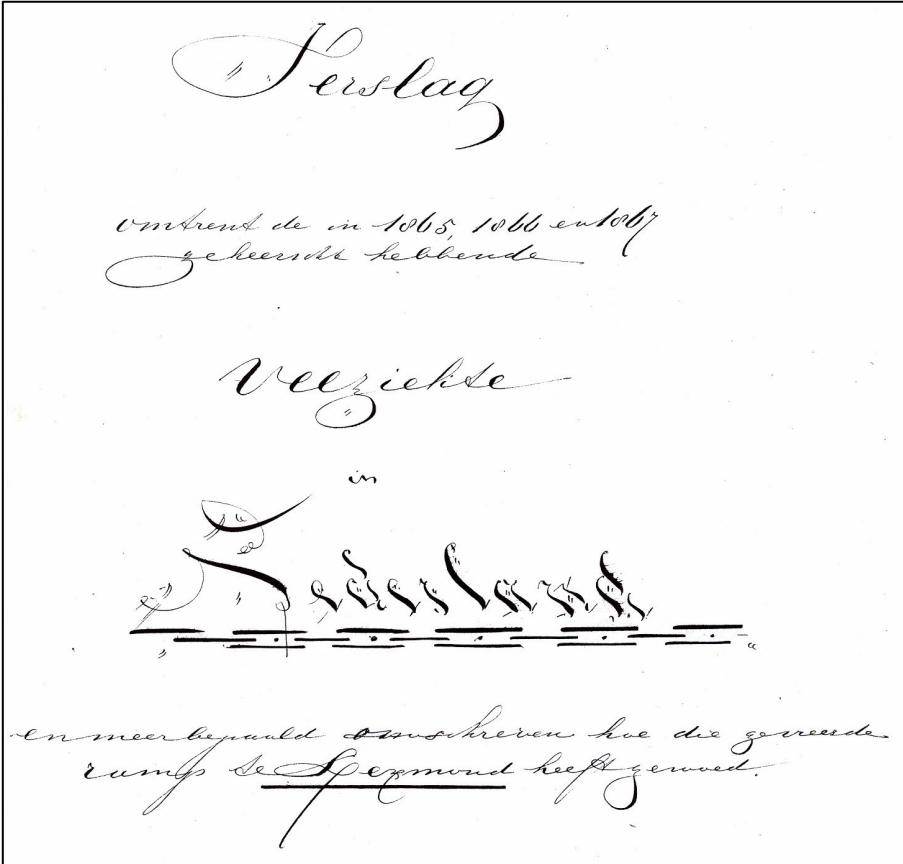 Verslag
omtrent de in 1865, 1866 en 1867
geheerscht hebbende
Veeziekte
in
Nederland
en meer bepaald omschreven hoe die gevreesde
ramp te Lexmond heeft gewoed.